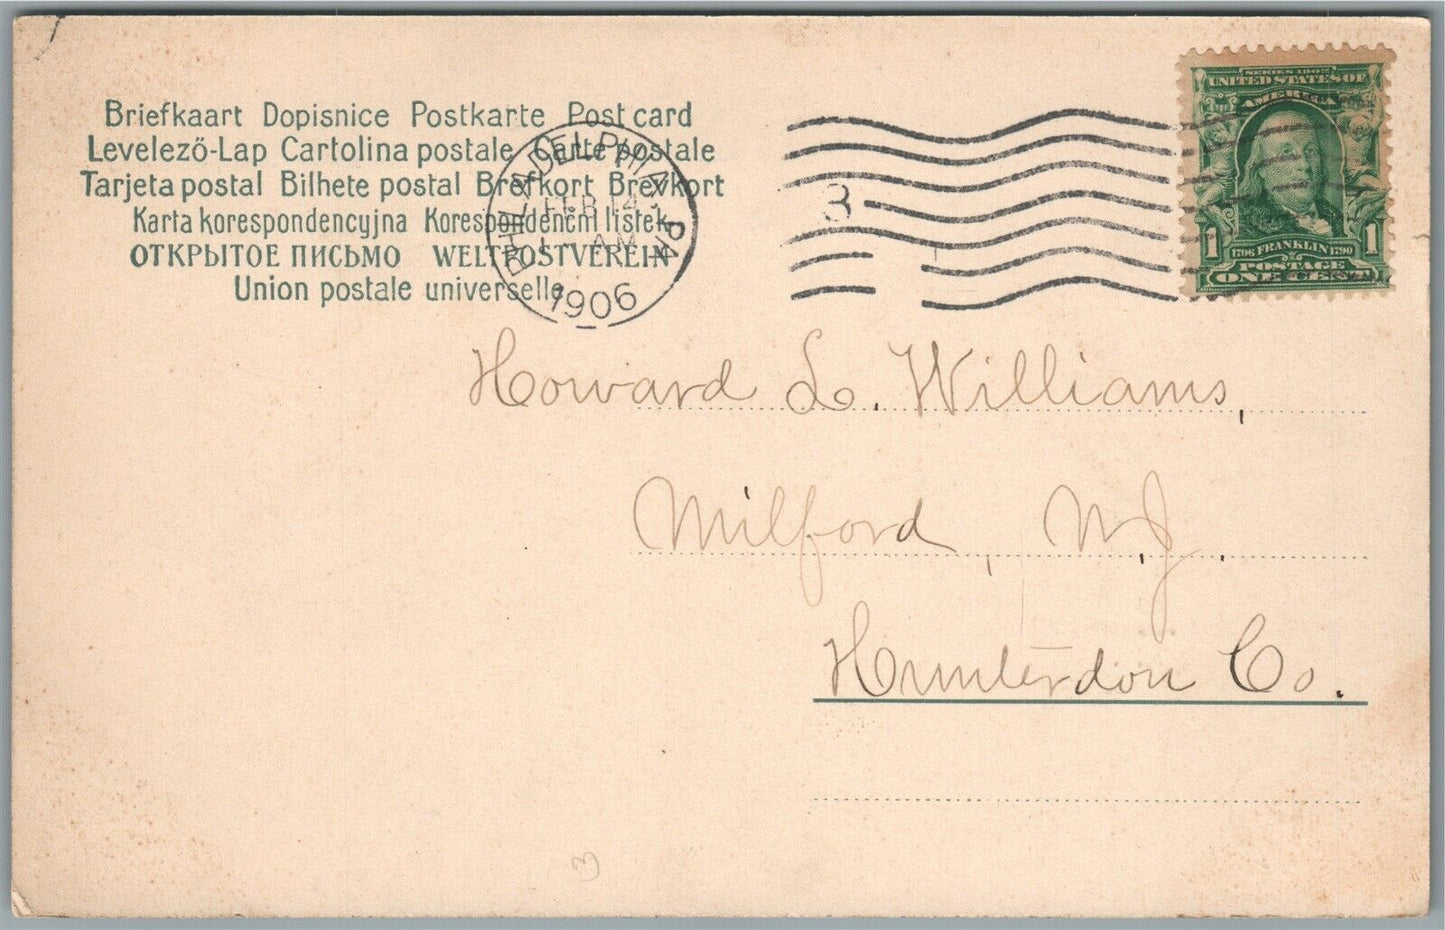 Briefkaart Dopisnice Postkarte Post card
Levelező-Lap Cartolina postale Carte postale
Tarjeta postal Bilhete postal Brefkort Brevkort
Karta korespondencyjna Korespondenčni listek
ОТКРЫТОЕ ПИСЬМО WELTPOSTVEREIN
Union postale universelle
PHILADELPHIA, PA.
FEB 14
AM
1906
3
SERIES 1902
UNITED STATES OF
AMERICA
1706 FRANKLIN 1790
1 1
POSTAGE
ONE CENT
Howard L. Williams,
Milford, N.J.
Hunterdon Co.
3